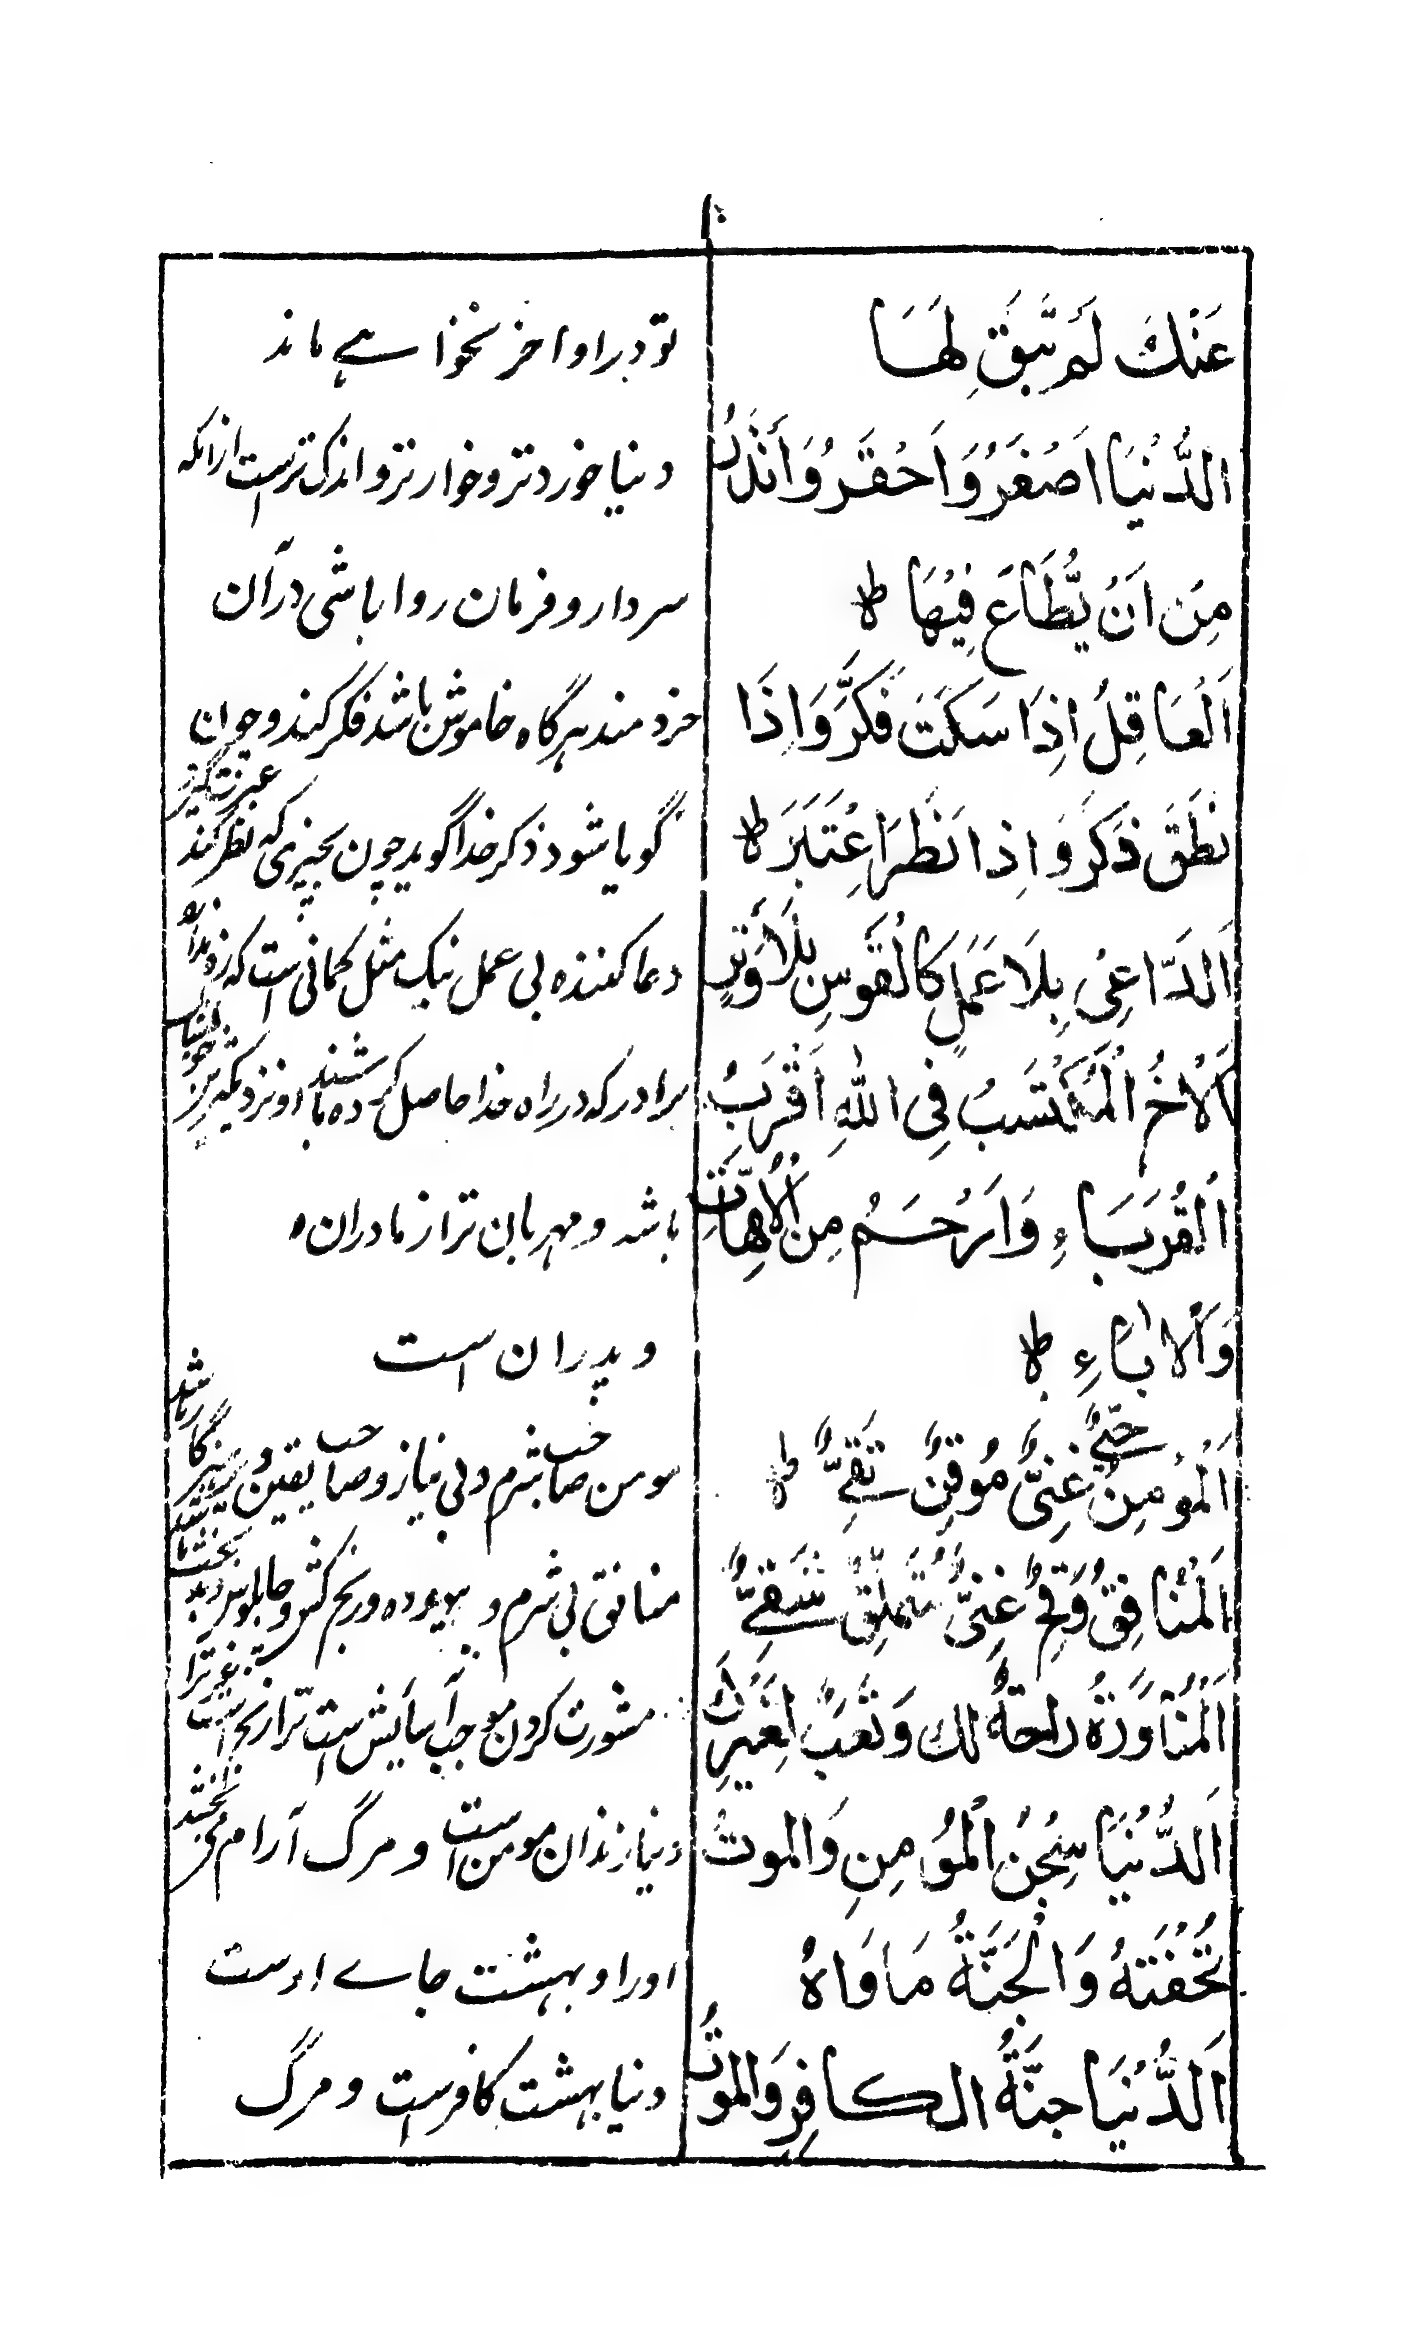 ۱۰
عَنْكَ لَمْ تَبْقَ لَهَا
تو در او آخر نخواہے ماند
الدُّنْيَا اَصْغَرُ وَاَحْقَرُ وَاَنْذَرُ
دنیا خوردتر و خوارتر و اندک ترست ازانکه
مِنْ اَنْ يُّطَاعَ فِيْهَا ط
سردار و فرمان روا باشی درآن
اَلْعَاقِلُ اِذَا سَكَتَ فَكَّرَ وَاِذَا
خردمند هرگاه خاموش باشد فکر کند و چون
نَطَقَ ذَكَرَ وَاِذا نَظَرَ اِعْتَبَرَ ط
گویا شود ذکر خدا گوید چون بچیزی که نظر کند عبرت گیرد
اَلدَّاعِیْ بِلَا عَمَلٍ كَالْقَوْسِ بِلَا وَتَرٍ
دعا کننده بی عمل نیک مثل کمانی است که زه ندارد
اَلْاَخُ الْمُكْتَسَبُ فِی اللّٰهِ اَقْرَبُ
برادر که در راه خدا حاصل کرده باشند او نزدیکترین خویشان
اَلْقُرَبَاءِ وَاَرْحَمُ مِنَ الْاُمَّهَاتِ
باشد و مهربان تر از مادران ہ
وَالْاٰبَاءِ ط
و پدران است
اَلْمُؤْمِنُ حَيِیٌّ غَنِیٌّ مُوْقِنٌ تَقِیٌّ ط
مومن صاحب شرم و بی نیاز و صاحب یقین و پرهیزگار باشد
اَلْمُنَافِقُ وَقِحٌ غَنِیٌّ مُتَمَلِّقٌ شَقِیٌّ
منافق بی شرم و بیهوده و رنج کش و چاپلوس و بدبخت باشد
اَلْمُشَاوَرَةُ رَاحَةٌ لَكَ وَتَعَبٌ لِغَيْرِكَ
مشورت کردن موجب آسایش است ترا و رنج است غیر ترا
اَلدُّنْيَا سِجْنُ الْمُؤْمِنِ وَالْمَوتُ
دنیا زندان مومن است و مرگ آرام می بخشد
تُحْفَتُهُ وَالْجَنَّةُ مَاوَاهُ
اورا و بهشت جاے اوست
اَلدُّنْيَا جَنَّةُ الْكَافِرِ وَالْمَوتُ
دنیا بهشت کافرست و مرگ